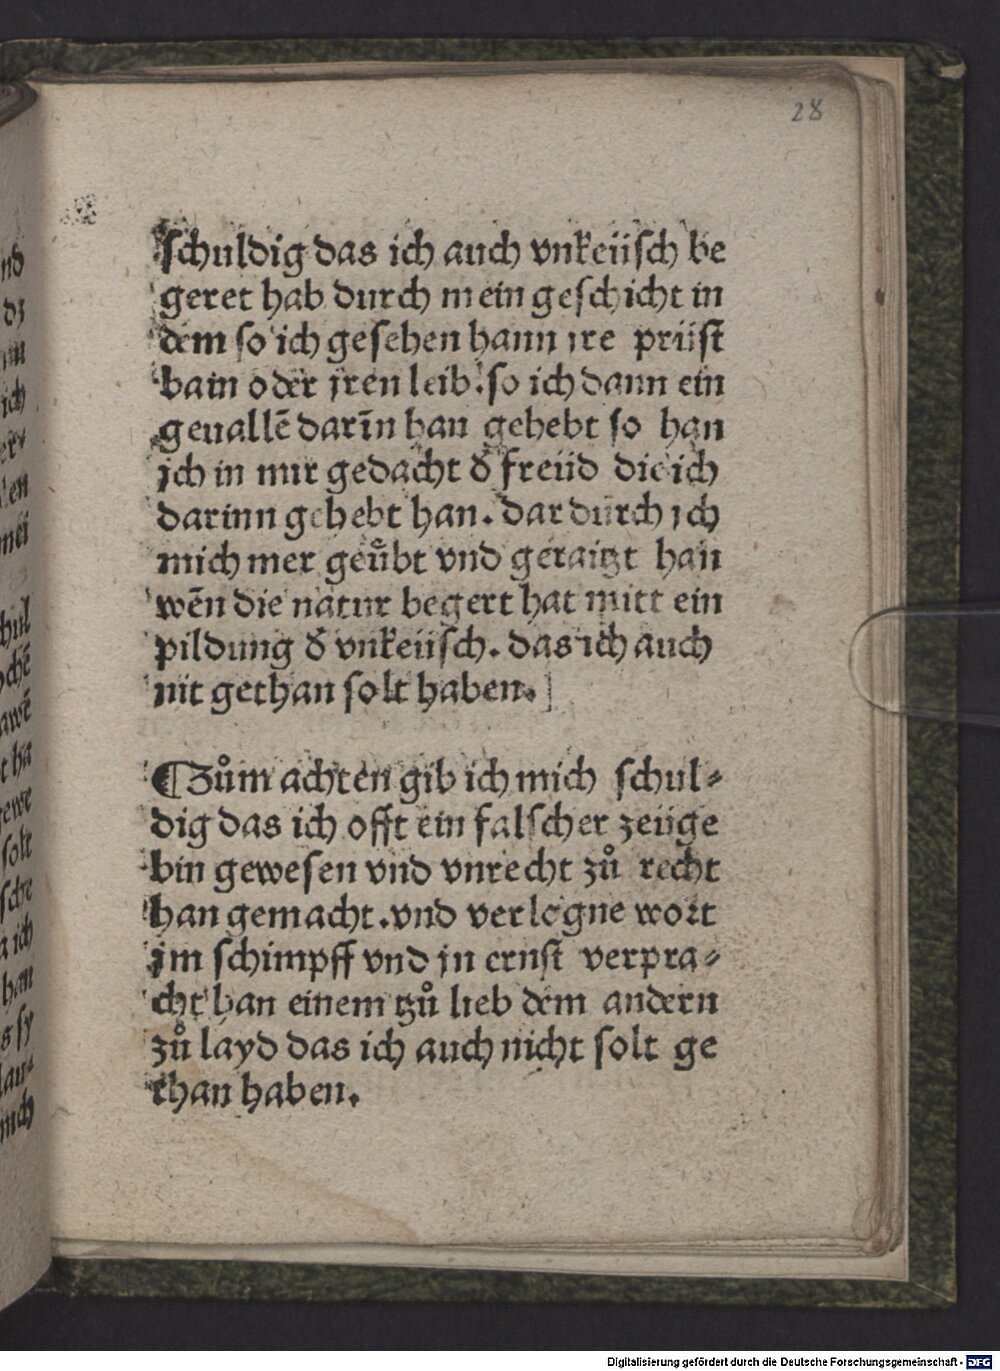 28
schuldig das ich auch vnkeüsch be
geret hab durch mein geschicht in
dem so ich gesehen hann jre prüst
bain oder jren leib. so ich dann ein
geuallē darīn han gehebt so han
jch in mir gedacht d̕ freüd die ich
darinn gehebt han. dar durch jch
mich mer geuͤbt vnd geraitzt han
wēn die natur begert hat mitt ein
pildung d̕ vnkeüsch. das ich auch
nit gethan solt haben.
¶ Zům achten gib ich mich schul⸗
dig das ich offt ein falscher zeüge
bin gewesen vnd vnrecht zů recht
han gemacht. vnd verlogne wort
jm schimpff vnd jn ernst verpra⸗
cht han einem tzů lieb dem andern
zů layd das ich auch nicht solt ge
than haben.
Digitalisierung gefördert durch die Deutsche Forschungsgemeinschaft - DFG